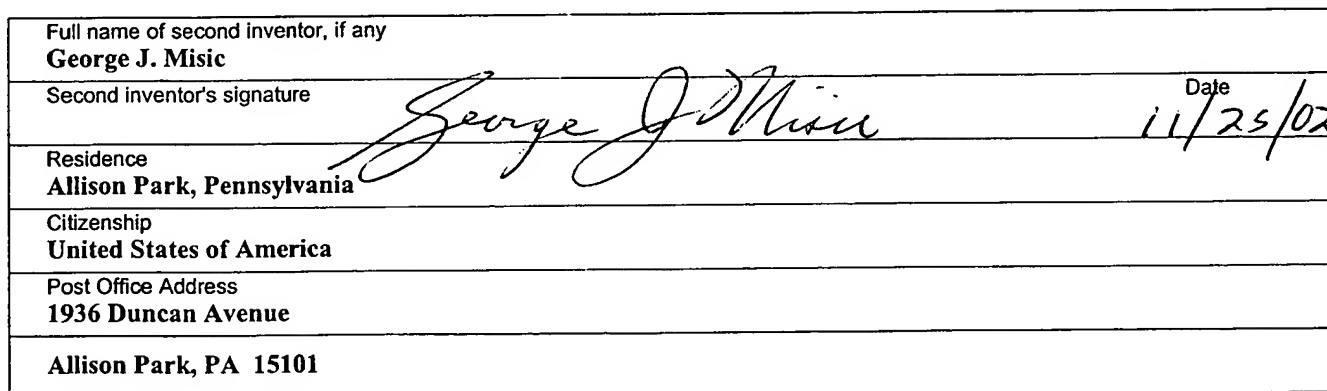 Full name of second inventor, if any
George J. Misic
Second inventor's signature George J Misic Date 11/25/02
Residence
Allison Park, Pennsylvania
Citizenship
United States of America
Post Office Address
1936 Duncan Avenue
Allison Park, PA 15101